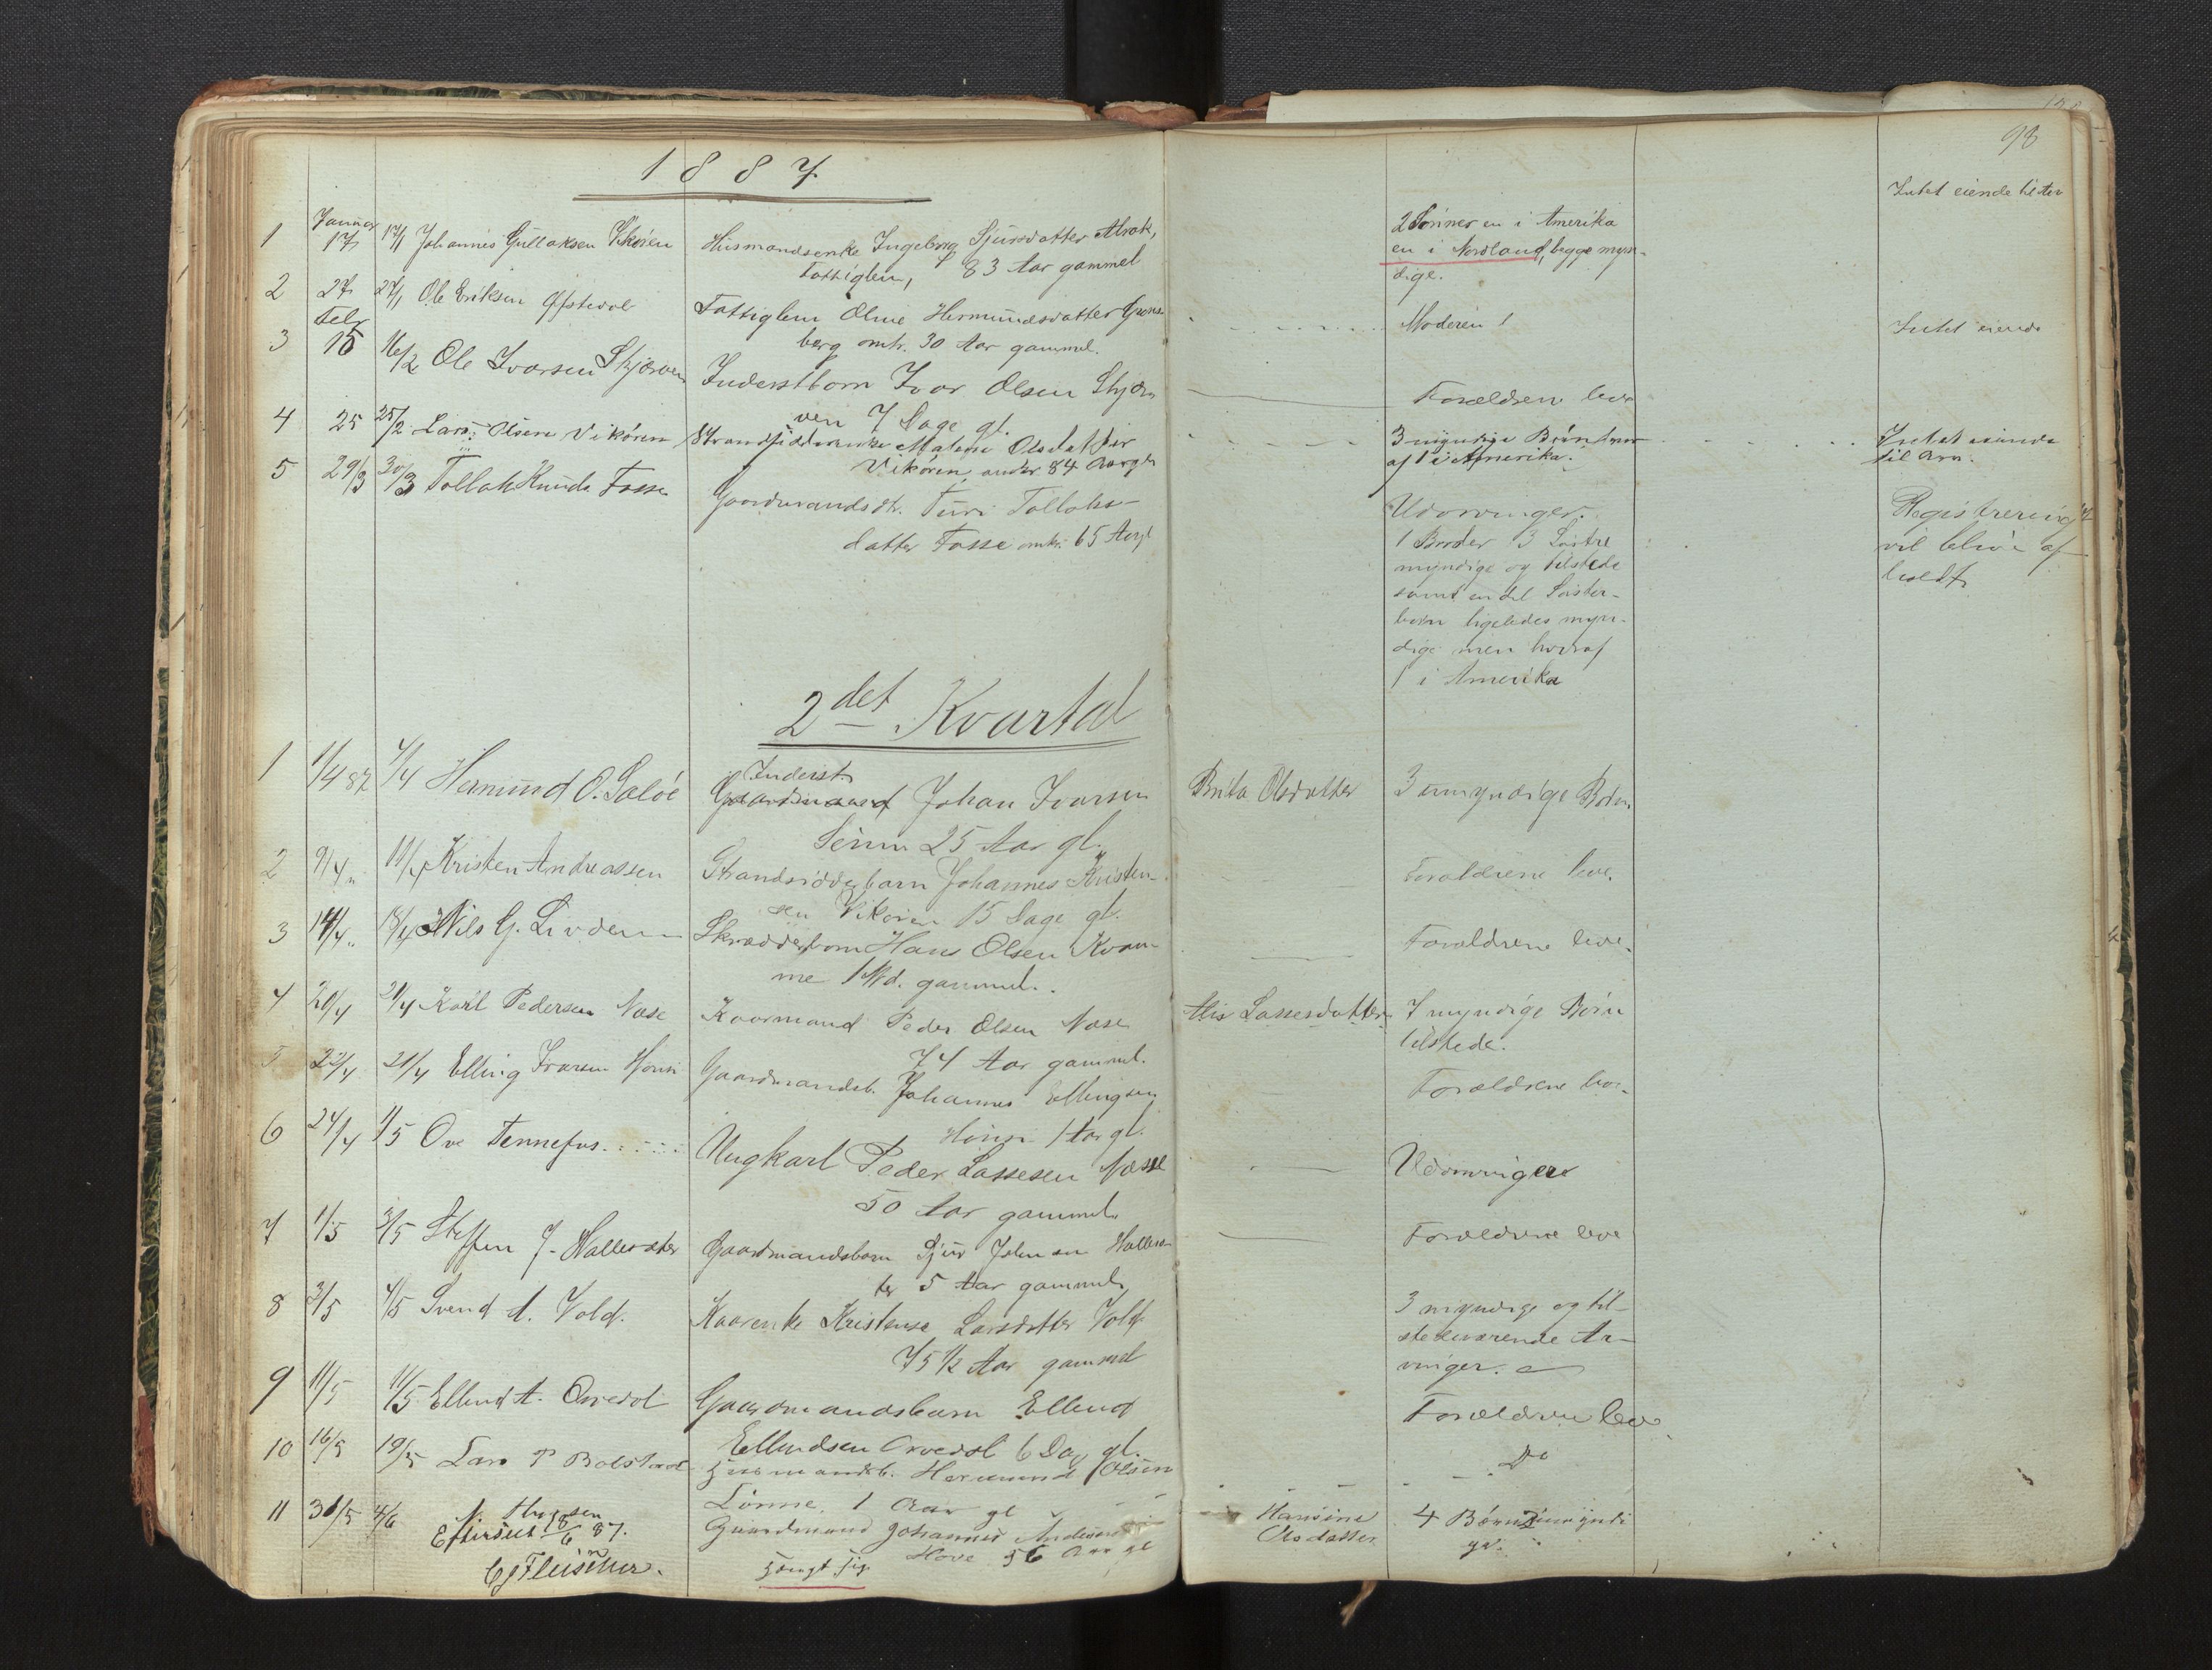 1887
98
Januar
1 17 17/1 Johannes Gullaksen Vikören Husmandsenke Ingeborg Sjursdatter
Fattiglem, 83 Aar gammel
2 Sönner en i Amerika
en i Nordland, begge myn-
dige.
Intet eiende
2 27 27/1 Ole Eriksen Fattiglem Oline Hermundsdatter Grøns-
berg omtr. 30 Aar gammel.
Moderen
Intet eiende
Febr
3 15 16/2 Ole Ivarsen Skjerven Inderstbarn Ivar Olsen Skjer
ven 7 Dage gl.
Forældrene lever
4 25 25/2 Lars Olsen Vikören Strandsidderenke Olsdatter
Vikören, 84 Aar gl
3 myndige Börn hvor
af 1 i Amerika.
Intet eiende
til Arv.
5 29/3 30/3 Tollak Knuds Fosse Gaardmandsdtr. Turi Tollaks-
datter Fosse omtr. 65 Aar gl
Udarvinger.
1 Broder 3 Söstre
myndige og tilstede
samt en del Söster-
börn ligeledes myn-
dige men hvoraf
1 i Amerika
Registrering
vil blive af-
holdt
2det Kvartal
1 1/4 87 4/4 Hermund O. Saløe Inderst
Gaardmand Johan Ivarsen
25 Aar gl.
Brita Olsdatter
3 umyndige Börn.
2 9/4 11/4 Kristen Andreassen Strandsidderbarn Johannes Kristen-
sen Vikören 15 Dage gl.
Forældrene leve.
3 14/4 18/4 Nils G. Skrædderbarn Hans Olsen Kvam-
me 1 Md. gammel.
Forældrene leve.
4 20/4 21/4 Karl Pedersen Nese Kaarmand Peder Olsen Nese
74 Aar gammel.
Lassesdatter
7 myndige Börn
tilstede.
5 22/4 Elling Ivarsen Gaardmandsb. Johannes Ellingsen
1 Aar gl.
Forældrene leve.
6 24/4 1/5 Ove Tennefos Ungkarl Peder Lassesen Nesse
50 Aar gammel.
Udarvinger
7 1/5 3/5 Steffen J. Hallesæter Gaardmandsbarn Sjur Johnsen Hallesæ-
ter 5 Aar gammel,
Forældrene leve
8 3/5 4/5 Svend A. Vold. Kaarenke Kristense Larsdatter Vold
75 1/2 Aar gammel
3 myndige og til-
stedeværende Ar-
vinger.
9 11/5 11/5 Ellend A. Orvedal Gaardmandsbarn Ellend
Ellendsen Orvedal 6 Dag gl.
Forældrene leve
10 16/5 19/5 Lars P Bolstad Husmandsb. Hermund Olsen
Lönne. 1 Aar gl
Do
11 31/5 4/6 Gaardmand Johannes Andersen
Hove 56 Aar gl
hængt sig.
Hansine
Olsdatter
4 Börn 2 umyndi
ge.
Efterseet 8/6 87.
Fleischer.